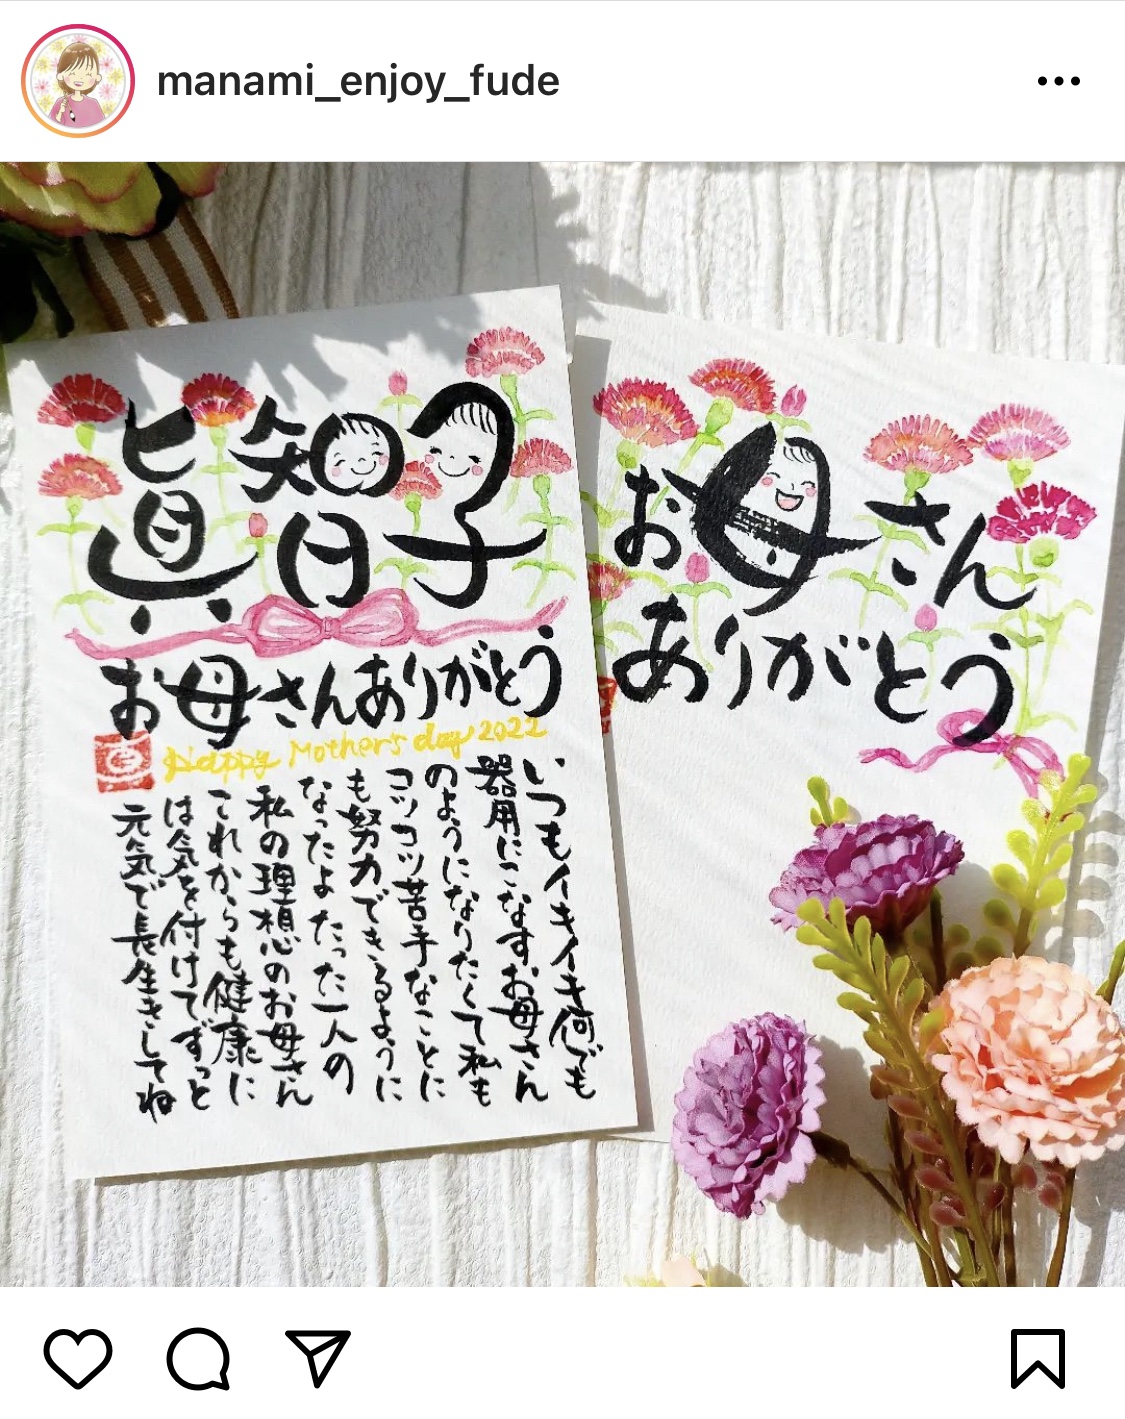 manami_enjoy_fude
眞智子
お母さんありがとう
Happy Mother's day 2022
いつもイキイキ何でも
器用にこなすお母さん
のようになりたくて私も
コツコツ苦手なことに
も努力できるように
なったよ たった一人の
私の理想のお母さん
これからも健康に
は気を付けてずっと
元気で長生きしてね
お母さん
ありがとう